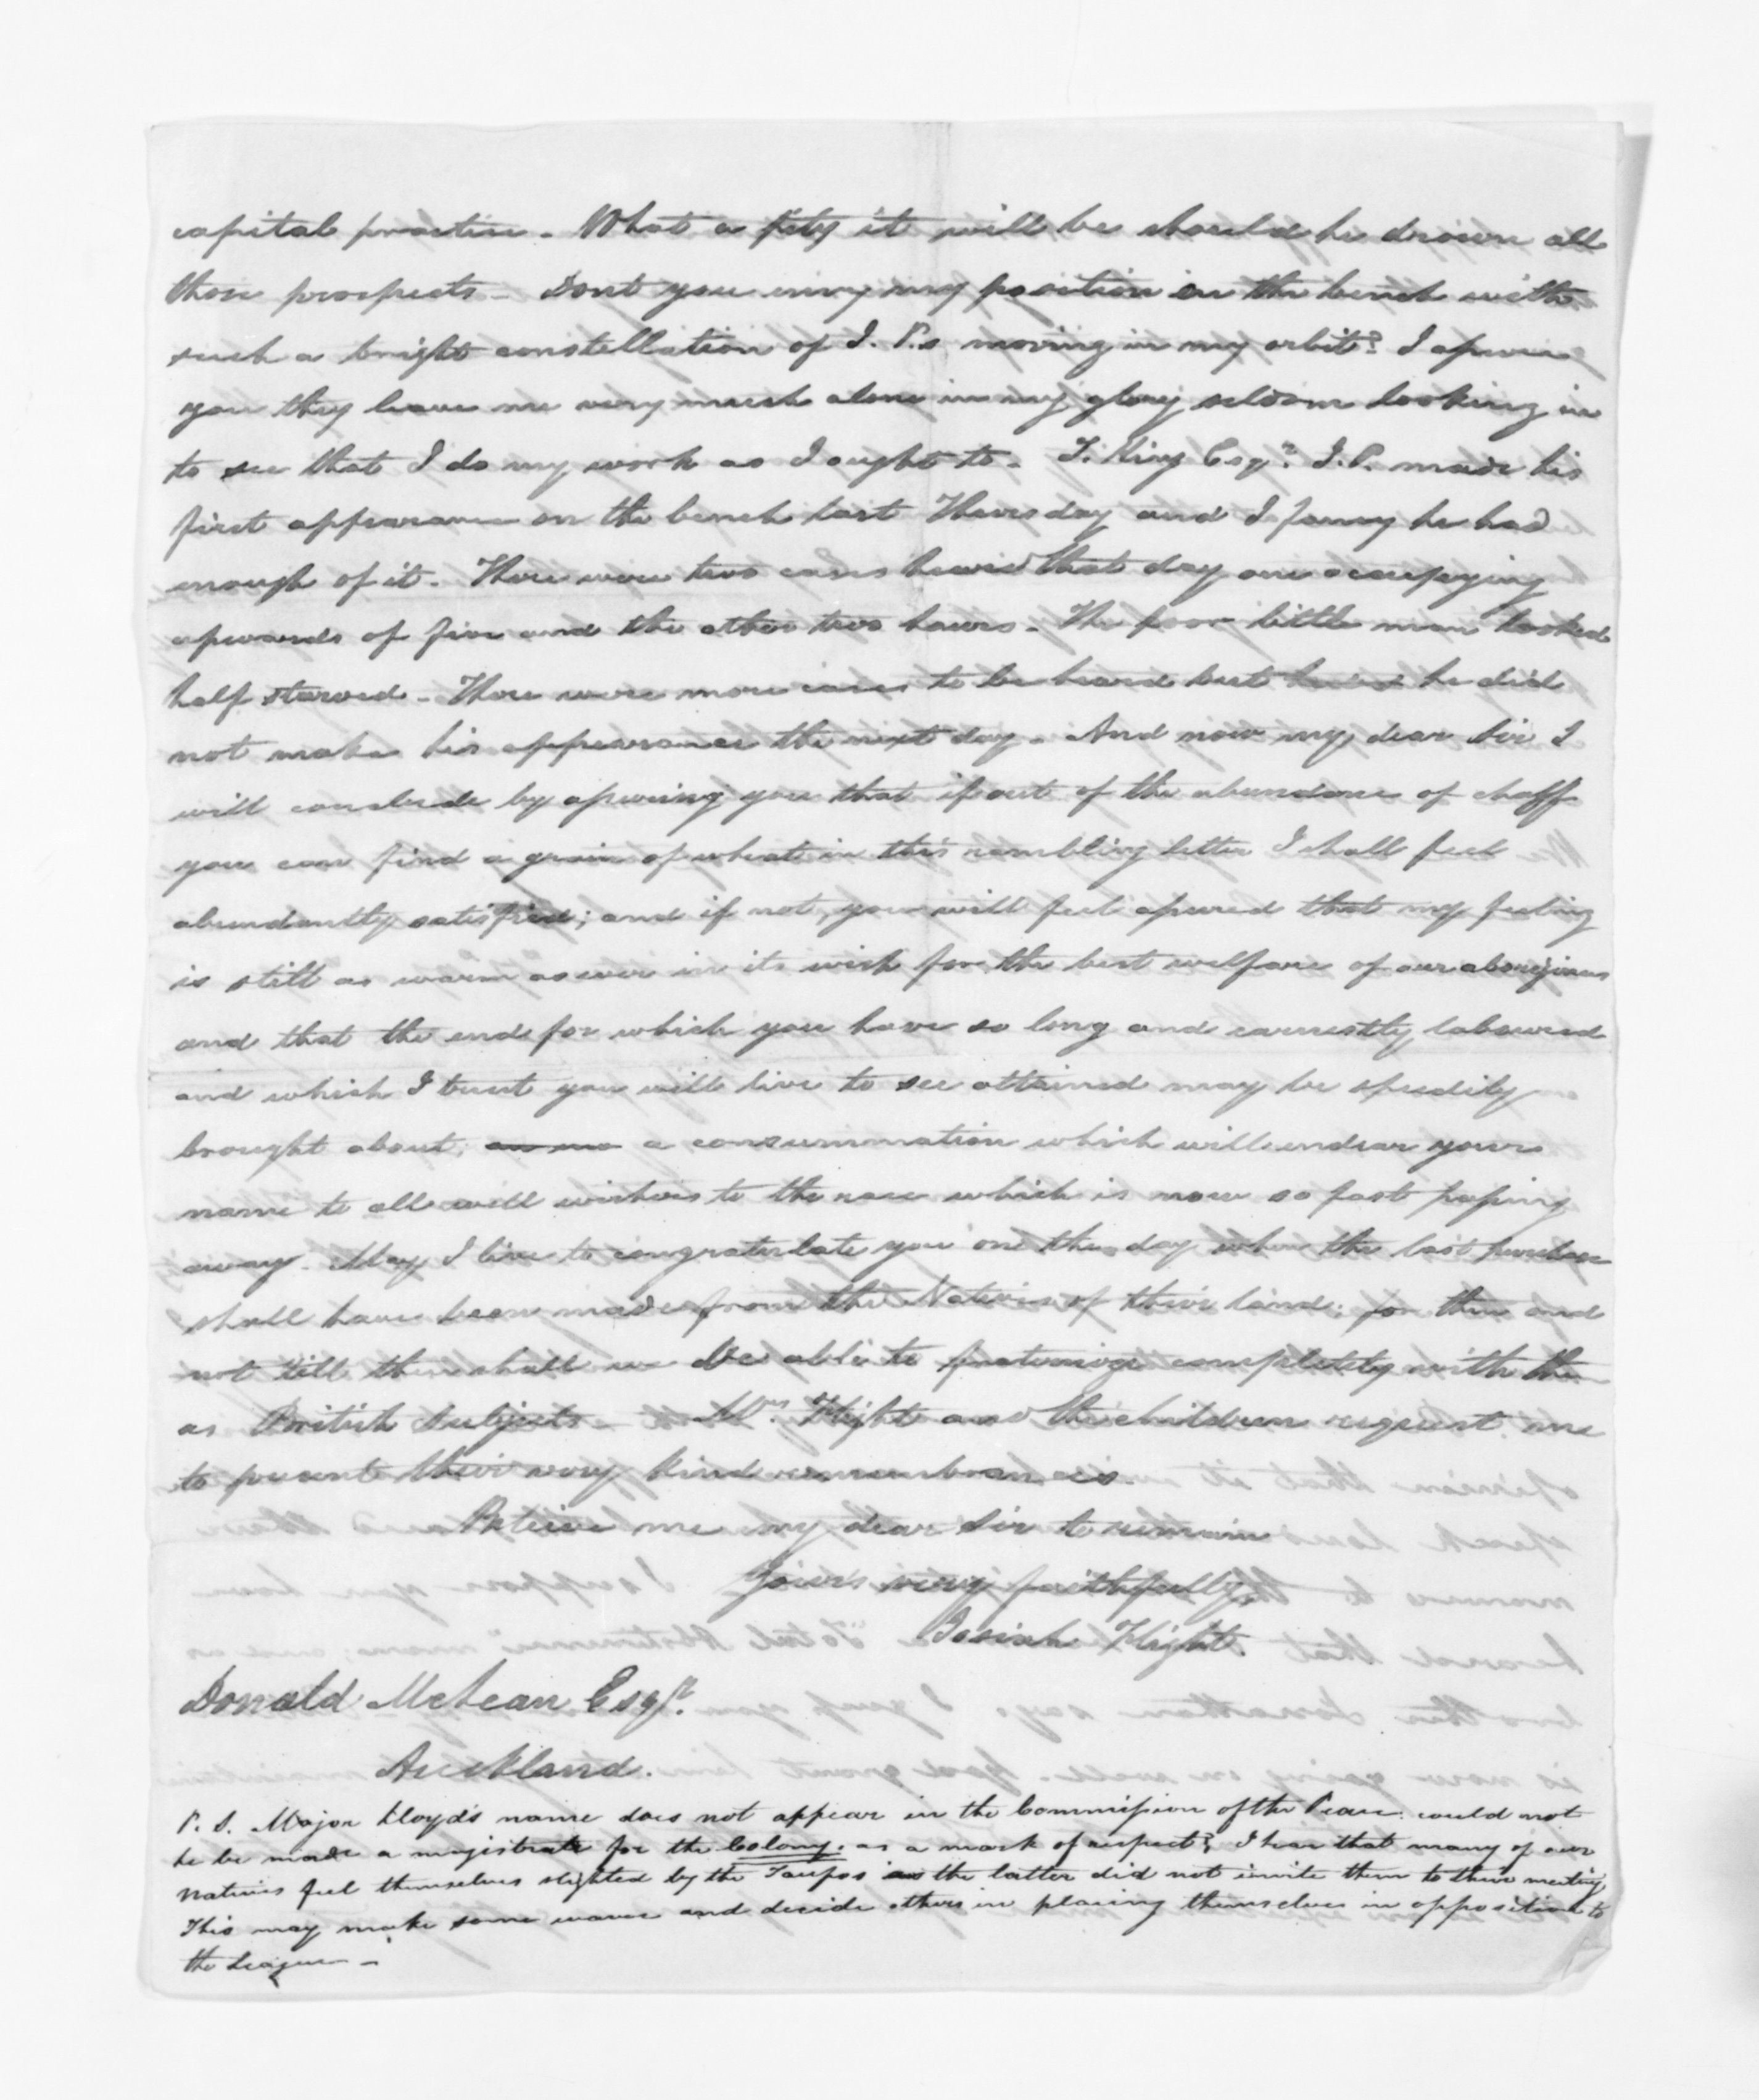 capital practice - What a pity it will be should he drown all
those prospects - Dont you envy my position on the bench with
such a bright constellation of J. P.s moving in my orbit? I assure
you they leave me very much alone in my glory seldom looking in
to see that I do my work as I ought to - T. King Esqr. J.P. made his
first appearance on the bench last Thursday and I fancy he had
enough of it - There were two cases heard that day one occupying
upwards of five and the other two hours - The poor little man looked
half starved - There were more cases to be heard but he did
not make his appearance the next day - And now my dear Sir I
will conclude by assuring you that if out of the abundance of chaff
you can find a grain of wheat in this rambling letter I shall feel
abundantly satisfied; and if not, you will feel assured that my feeling
is still as warm as ever in its wish for the best welfare of our aborigines
and that the ends for which you have so long and earnestly laboured
and which I trust you will live to see attained may be speedily
brought about, a consummation which will endear your
name to all well wishers to the race which is now so fast passing
away. May I live to congratulate you on the day when the last purchase
shall have been made from the Natives of their land; for then and
not till then shall we be able to fraternize completely with them
as British Subjects - Mrs. Flight and the children request me
to present their very kind remembrances.
Believe me my dear Sir to remain
Yours very faithfully,
Josiah Flight.
Donald McLean Esqr.
Auckland.
P. S. Major Lloyd's name does not appear in the Commission of the Peace: could not
he be made a magistrate for the Colony, as a mark of respect? I hear that many of our
Natives feel themselves slighted by the Taupos as the latter did not invite them to their meeting,
This may make some waver and decide others in placing themselves in opposition to
the League -